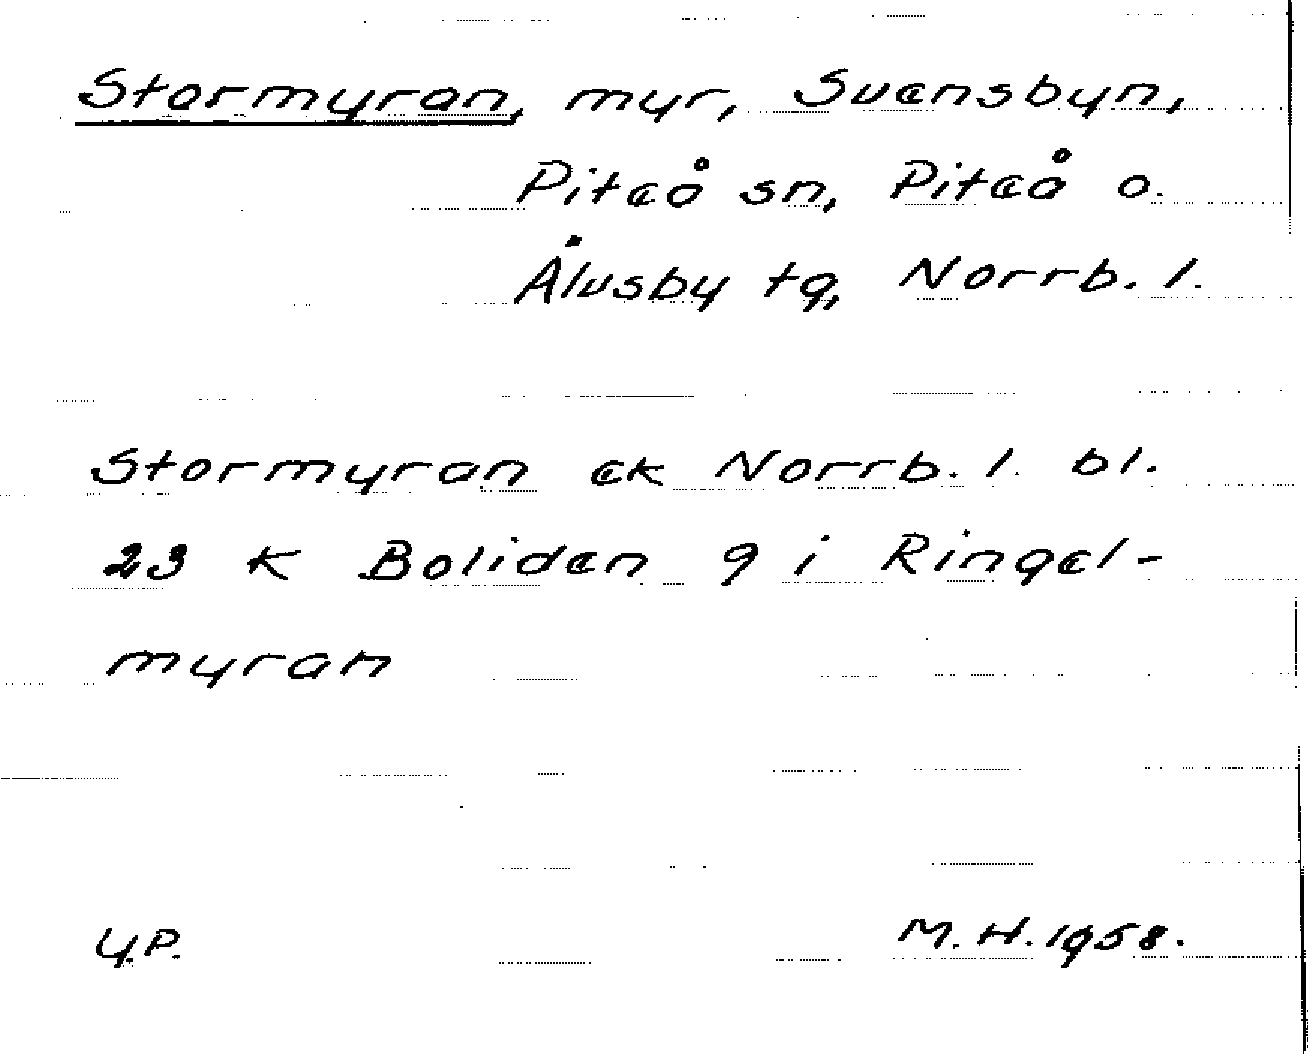 Stormyran, myr, Svensbyn,
Piteå sn, Piteå o.
Älvsby tg, Norrb. l.
Stormyran ek Norrb. l. bl.
23 K Boliden 9 i Ringel-
myran
Y.P.
M.H. 1958.